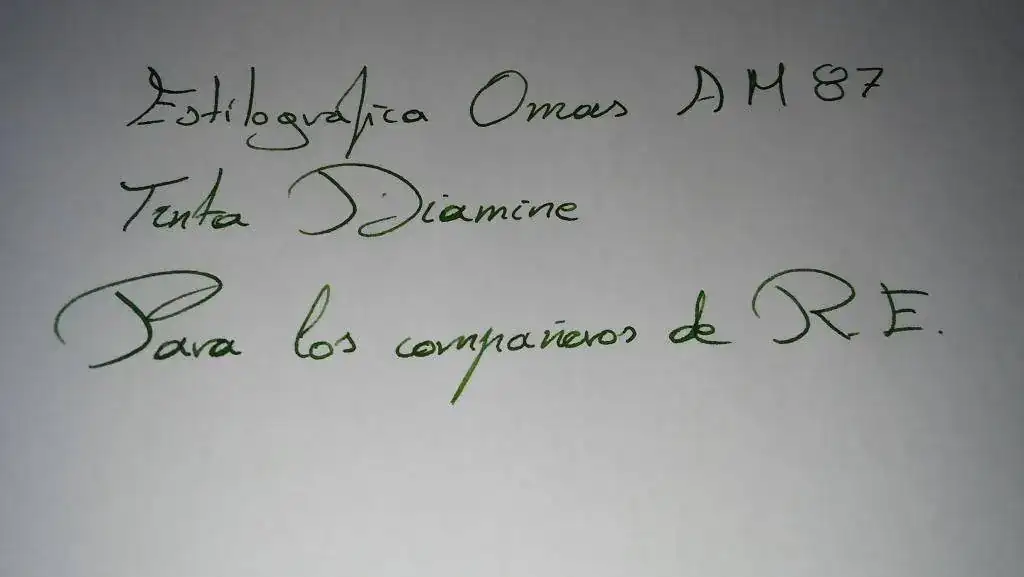 Estilográfica Omas AM 87
Tinta Diamine
Para los compañeros de R E.